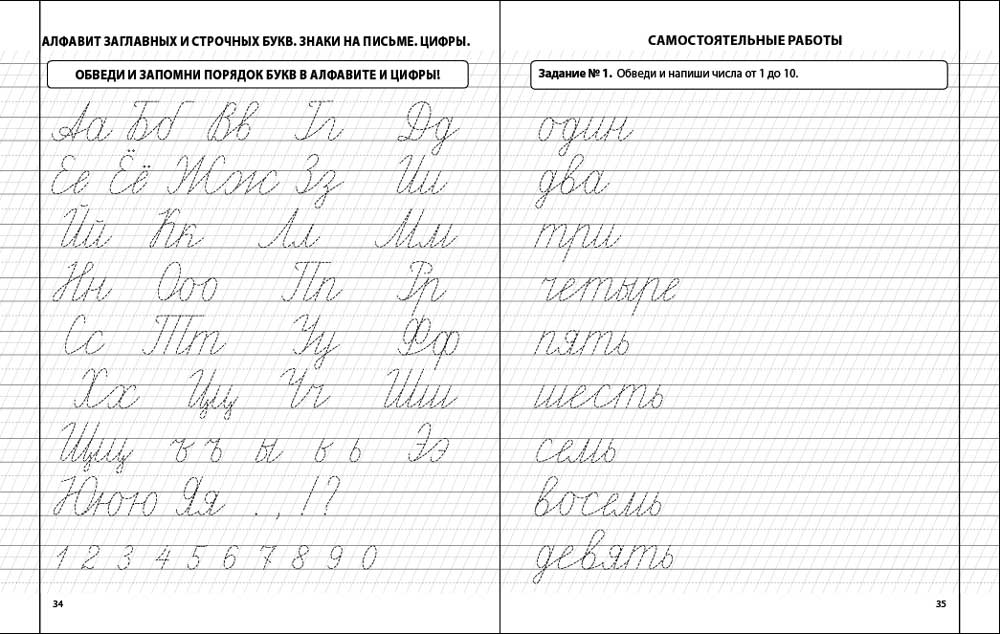 АЛФАВИТ ЗАГЛАВНЫХ И СТРОЧНЫХ БУКВ. ЗНАКИ НА ПИСЬМЕ. ЦИФРЫ.
ОБВЕДИ И ЗАПОМНИ ПОРЯДОК БУКВ В АЛФАВИТЕ И ЦИФРЫ!
Аа Бб Вв Гг Дд
Ее Ёё Жж Зз Ии
Йй Кк Лл Мм
Нн Ооо Пп Рр
Сс Тт Уу Фф
Хх Цц Чч Шш
Щщ ъ ъ ы ь ь Ээ
Ююю Яя . , ! ?
1 2 3 4 5 6 7 8 9 0
34
САМОСТОЯТЕЛЬНЫЕ РАБОТЫ
Задание № 1. Обведи и напиши числа от 1 до 10.
один
два
три
четыре
пять
шесть
семь
восемь
девять
35